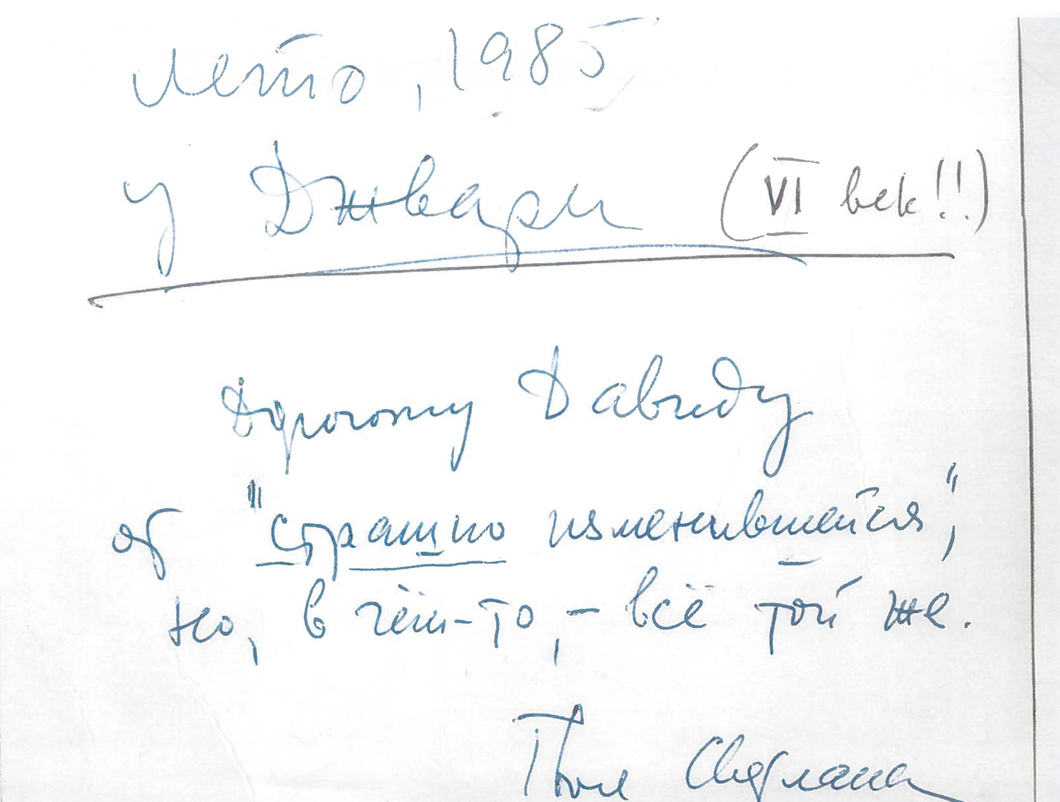 Лето, 1985
у Джвари (VI век!!)
Дорогому Давиду
от "страшно изменившейся",
но, в чём-то, – всё той же.
Твоя Светлана